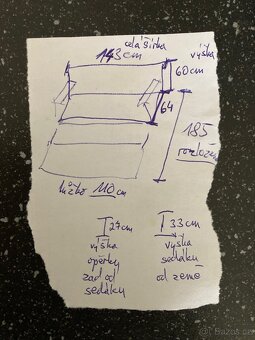 celá šířka
143cm
výška
60cm
64
185
rozložená
lůžko 110cm
27cm
výška
opěrky
zad od
sedáku
33cm
výška
sedáku
od země
Bazoš.cz